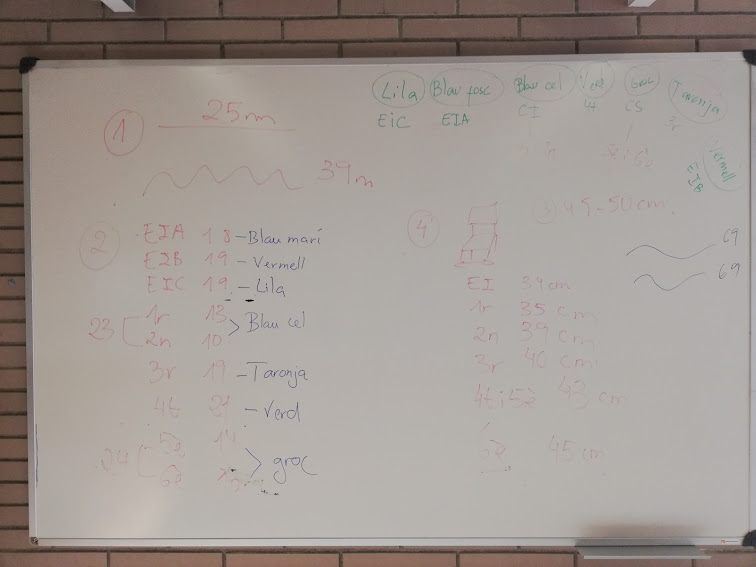 Lila Blau fosc Blau cel Verd Groc Taronja
EIC EIA CI 4t CS 3r
Vermell
EIB
1 25m
39m
2
EIA 18 - Blau marí
EIB 19 - Vermell
EIC 19 - Lila
23 1r 13
2n 10 > Blau cel
3r 19 - Taronja
4t 21 - Verd
24 5è 14
6è > groc
3 49-50 cm.
69
69
4
EI 34 cm
1r 35 cm
2n 39 cm
3r 40 cm
4t i 5è 43 cm
6è 45 cm